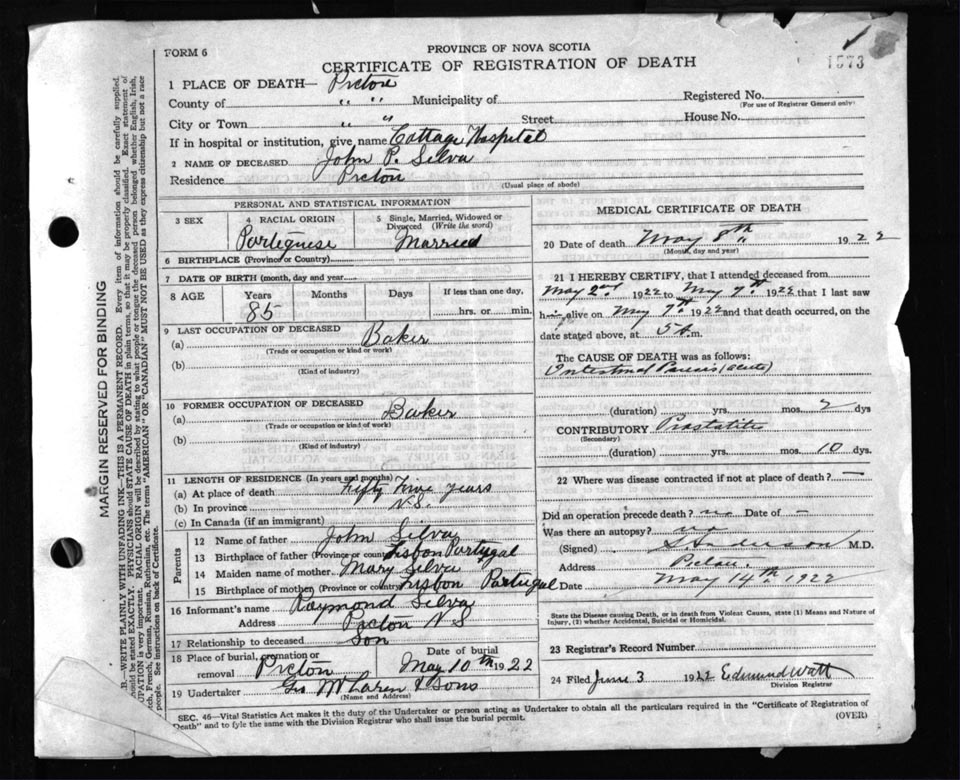 FORM 6
PROVINCE OF NOVA SCOTIA
CERTIFICATE OF REGISTRATION OF DEATH
1573
1 PLACE OF DEATH— Pictou
Registered No.
(For use of Registrar General only)
County of " " Municipality of
City or Town " " Street House No.
If in hospital or institution, give name Cottage Hospital
2 NAME OF DECEASED John P. Silva
Residence Pictou
(Usual place of abode)
PERSONAL AND STATISTICAL INFORMATION
3 SEX
4 RACIAL ORIGIN
Portegnese
5 Single, Married, Widowed or Divorced (Write the word)
Married
6 BIRTHPLACE (Province or Country)
7 DATE OF BIRTH (month, day and year)
8 AGE Years Months Days If less than one day,
85 hrs. or min.
9 LAST OCCUPATION OF DECEASED
(a) Baker
(Trade or occupation or kind or work)
(b)
(Kind of industry)
10 FORMER OCCUPATION OF DECEASED
(a) Baker
(Trade or occupation or kind of work)
(b)
(Kind of industry)
11 LENGTH OF RESIDENCE (In years and months)
(a) At place of death Fifty Five years
(b) In province N.S.
(c) In Canada (if an immigrant)
Parents
12 Name of father John Silva
13 Birthplace of father (Province or country) Lisbon Portugal
14 Maiden name of mother Mary Silva
15 Birthplace of mother (Province or country) Lisbon Portugal
16 Informant's name Raymond Silva
Address Pictou N S
17 Relationship to deceased Son
18 Place of burial, cremation or removal Pictou
Date of burial May 10th 1922
19 Undertaker Geo McLaren & Sons
(Name and Address)
MEDICAL CERTIFICATE OF DEATH
20 Date of death May 8th 1922
(Month, day and year)
21 I HEREBY CERTIFY, that I attended deceased from
May 2nd 1922 to May 7th 1922 that I last saw
h im alive on May 7th 1922 and that death occurred, on
date stated above, at 5 A. m.
The CAUSE OF DEATH was as follows:
Intestinal Paresis (acute)
(duration) yrs. mos. 2 dys
CONTRIBUTORY Prostatitis
(Secondary)
(duration) yrs. mos. 10 dys
22 Where was disease contracted if not at place of death? —
Did an operation precede death? no Date of —
Was there an autopsy? no
(Signed) M.D.
Address Pictou.
Date May 14th 1922
State the Disease causing Death, or in death from Violent Causes, state (1) Means and Nature of
Injury, (2) whether Accidental, Suicidal or Homicidal.
23 Registrar's Record Number
24 Filed June 3 1922 Edmund Watt
Division Registrar
SEC. 46—Vital Statistics Act makes it the duty of the Undertaker or person acting as Undertaker to obtain all the particulars required in the "Certificate of Registration of
Death" and to fyle the same with the Division Registrar who shall issue the burial permit.
(OVER)
MARGIN RESERVED FOR BINDING
B.—WRITE PLAINLY WITH UNFADING INK—THIS IS A PERMANENT RECORD. Every item of information should be carefully supplied.
should be stated EXACTLY. PHYSICIANS should STATE CAUSE OF DEATH in plain terms, so that it may be properly classified. Exact statement of
UPATION is very important. RACIAL ORIGIN will be described by stating to what people or tongue the deceased person belonged whether English, Irish,
tch, French, German, Russian, Ruthenian, etc. The terms "AMERICAN" OR "CANADIAN" MUST NOT BE USED as they express citizenship but not a race
people. See instructions on back of Certificate.